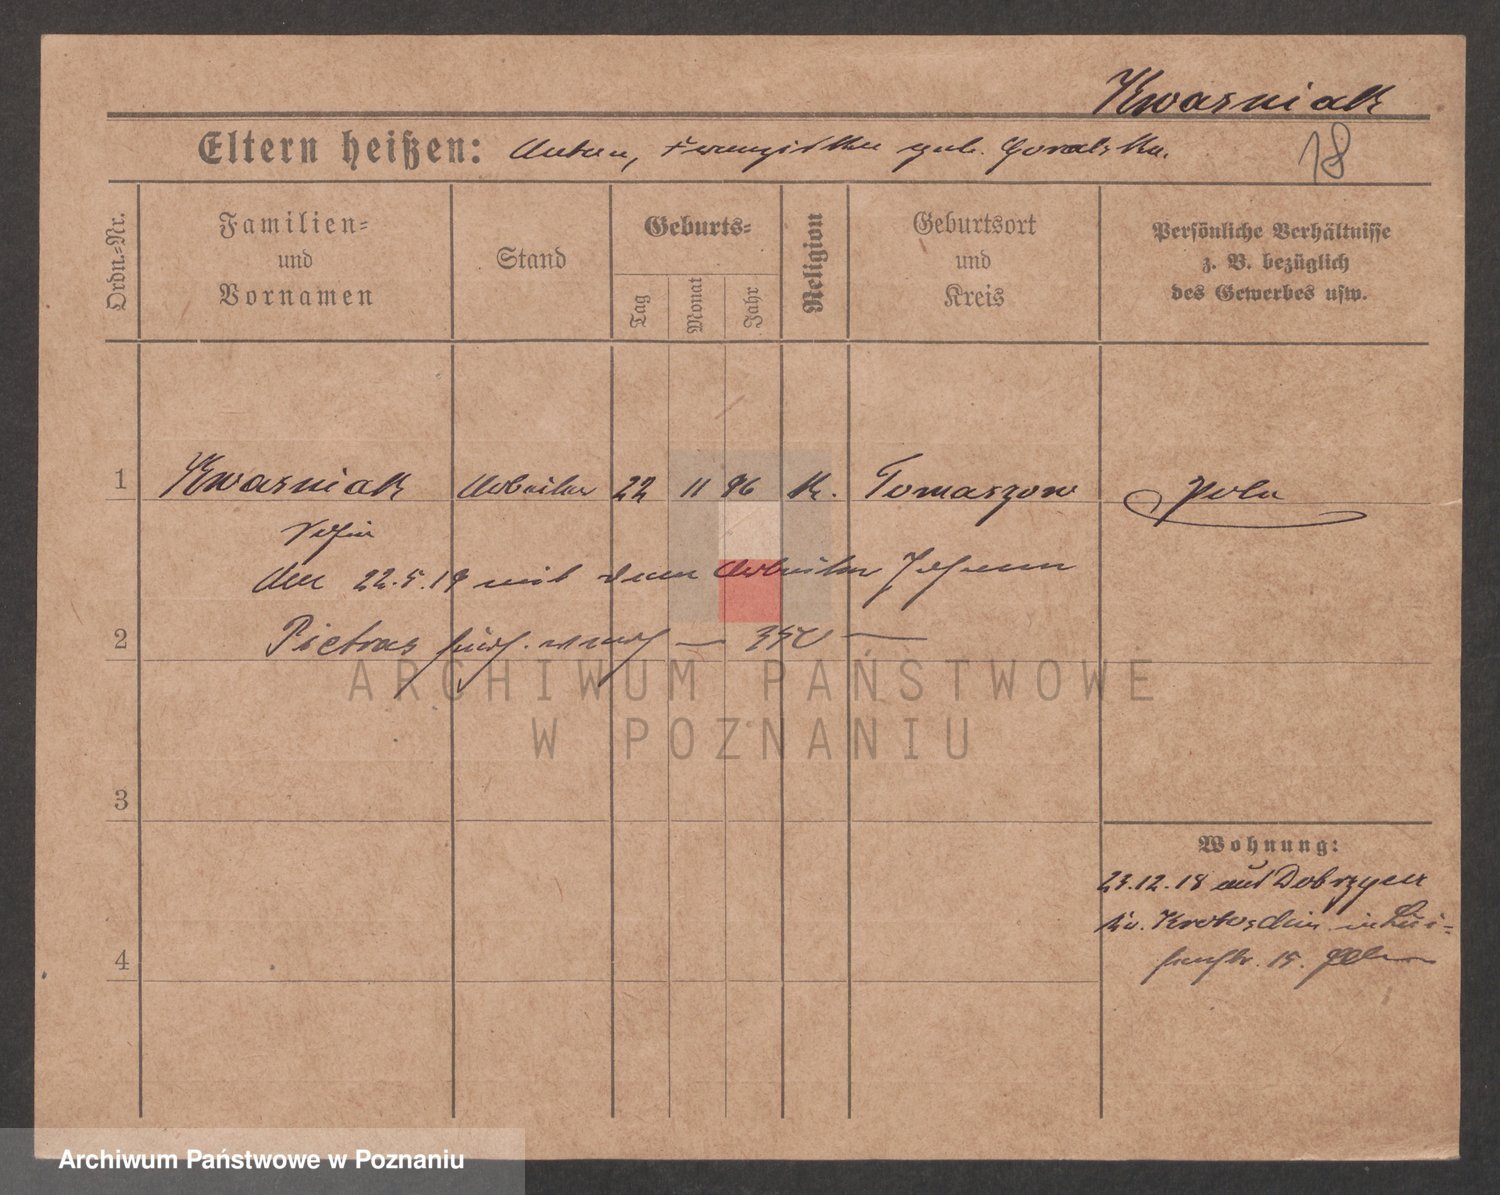 Kwasniak
Eltern heißen: Anton, Franziska geb. Goralska.
18
Ordn.-Nr.
Familien-
und
Vornamen
Stand
Geburts-
Tag
Monat
Jahr
Religion
Geburtsort
und
Kreis
Persönliche Verhältnisse
z. B. bezüglich
des Gewerbes usw.
1 Kwasniak Arbeiter 22 11 96 K. Tomaszow Pole
den 22.5.19 mit dem Arbeiter Johann
2 Pietras
3
Wohnung:
23.12.18 aus Dobrzyca
Kr. Krotoschin in Lui-
senstr. 15.
4
ARCHIWUM PAŃSTWOWE
W POZNANIU
Archiwum Państwowe w Poznaniu